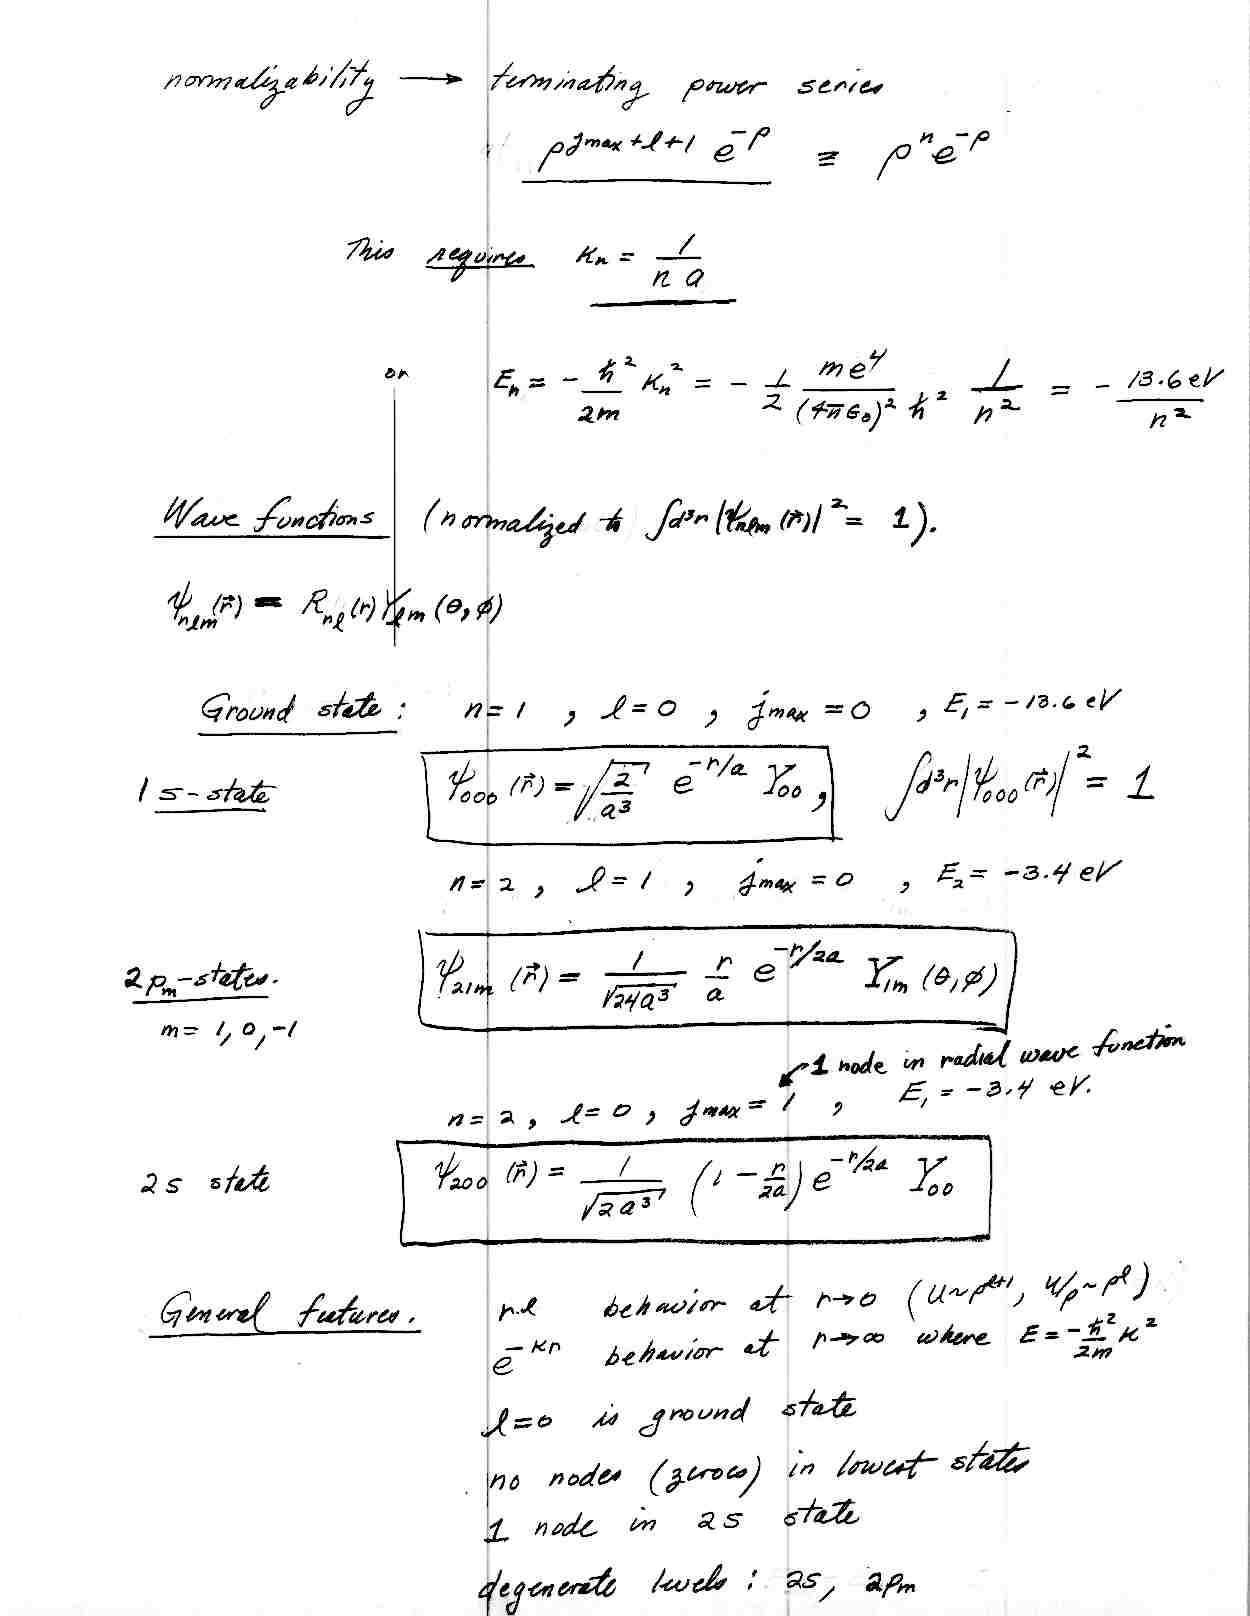 normalizability → terminating power series
ρ^{jmax+l+1} e^{-ρ} ≡ ρ^n e^{-ρ}
This requires κ_n = 1/(n a)
or E_n = -ħ²/2m κ_n² = -1/2 me⁴/((4πε₀)² ħ²) 1/n² = -13.6 eV/n²
Wave functions (normalized to ∫d³r|Ψ_{nlm}(r⃗)|² = 1).
Ψ_{nlm}(r⃗) = R_{nl}(r) Y_{lm}(θ,φ)
Ground state: n=1, l=0, jmax=0, E₁=-13.6 eV
1s-state Ψ₀₀₀(r⃗) = √(2/a³) e^{-r/a} Y₀₀, ∫d³r|Ψ₀₀₀(r⃗)|² = 1
n=2, l=1, jmax=0, E₂=-3.4 eV
2p_m-states. Ψ_{21m}(r⃗) = 1/√(24a³) r/a e^{-r/2a} Y_{1m}(θ,φ)
m= 1, 0, -1
↙ 1 node in radial wave function
n=2, l=0, jmax=1, E₁=-3.4 eV.
2s state Ψ₂₀₀(r⃗) = 1/√(2a³) (1 - r/2a) e^{-r/2a} Y₀₀
General features. r^l behavior at r→0 (u~ρ^{l+1}, u/ρ~ρ^l)
e^{-κr} behavior at r→∞ where E=-ħ²/2m κ²
l=0 is ground state
no nodes (zeroes) in lowest states
1 node in 2s state
degenerate levels: 2s, 2p_m